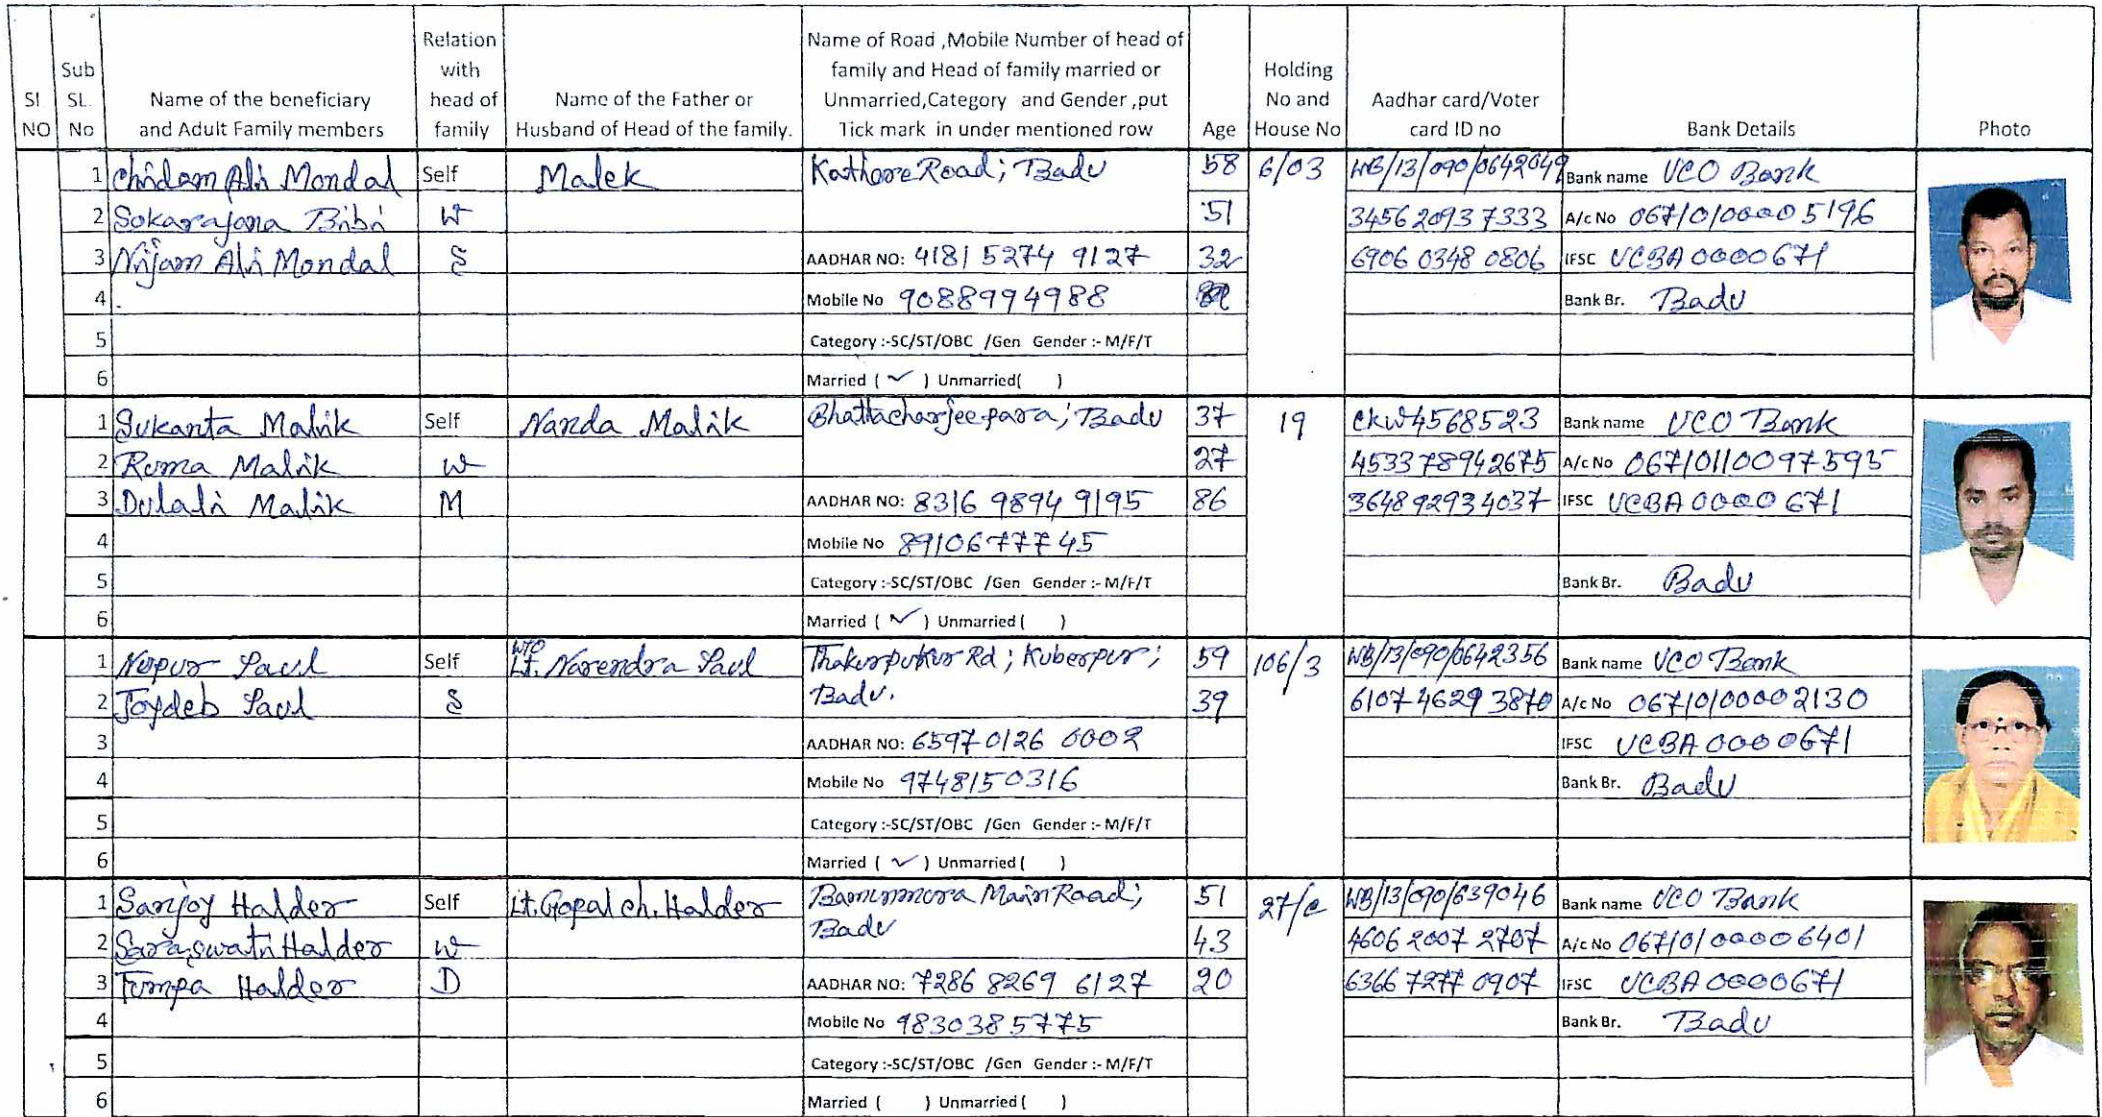 Sl NO
Sub SL. No
Name of the beneficiary and Adult Family members
Relation with head of family
Name of the Father or Husband of Head of the family.
Name of Road ,Mobile Number of head of family and Head of family married or Unmarried,Category and Gender ,put Tick mark in under mentioned row
Age
Holding No and House No
Aadhar card/Voter card ID no
Bank Details
Photo
1 Chidam Ali Mondal Self Malek Kathore Road; Badu 58 6/03 WB/13/090/0642049 Bank name UCO Bank
2 Sokarajana Bibi W 51 3456 2093 7333 A/c No 06710100005196
3 Nijam Ali Mondal S AADHAR NO: 4181 5274 9127 32 6906 0348 0806 IFSC UCBA0000671
4 Mobile No 9088994988 Bank Br. Badu
5 Category :-SC/ST/OBC /Gen Gender :- M/F/T
6 Married ( ✓ ) Unmarried( )
1 Sukanta Malik Self Nanda Malik Bhattacharjeepara; Badu 37 19 CKW4568523 Bank name UCO Bank
2 Ruma Malik W 27 4533 7894 2675 A/c No 06710110097595
3 Dulali Malik M AADHAR NO: 8316 9894 9195 86 3648 9293 4037 IFSC UCBA0000671
4 Mobile No 8910677745
5 Category :-SC/ST/OBC /Gen Gender :- M/F/T Bank Br. Badu
6 Married ( ✓ ) Unmarried ( )
1 Nupur Paul Self W/O Lt. Narendra Paul Thakurpukur Rd; Kuberpur; 59 106/3 WB/13/090/0642356 Bank name UCO Bank
2 Joydeb Paul S Badu. 39 6107 4629 3870 A/c No 06710100002130
3 AADHAR NO: 6597 0126 0002 IFSC UCBA0000671
4 Mobile No 9748150316 Bank Br. Badu
5 Category :-SC/ST/OBC /Gen Gender :- M/F/T
6 Married ( ✓ ) Unmarried ( )
1 Sanjoy Halder Self Lt. Gopal ch. Halder Bamunmura Main Road; 51 27/C WB/13/090/639046 Bank name UCO Bank
2 Saraswati Halder W Badu 43 4606 2007 2707 A/c No 06710100006401
3 Tumpa Halder D AADHAR NO: 7286 8269 6127 20 6366 7277 0907 IFSC UCBA0000671
4 Mobile No 9830385775 Bank Br. Badu
5 Category :-SC/ST/OBC /Gen Gender :- M/F/T
6 Married ( ) Unmarried ( )